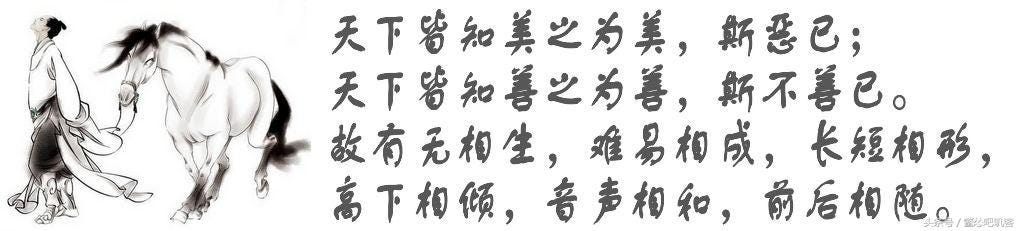 天下皆知美之为美，斯恶已；
天下皆知善之为善，斯不善已。
故有无相生，难易相成，长短相形，
高下相倾，音声相和，前后相随。
头条号 /